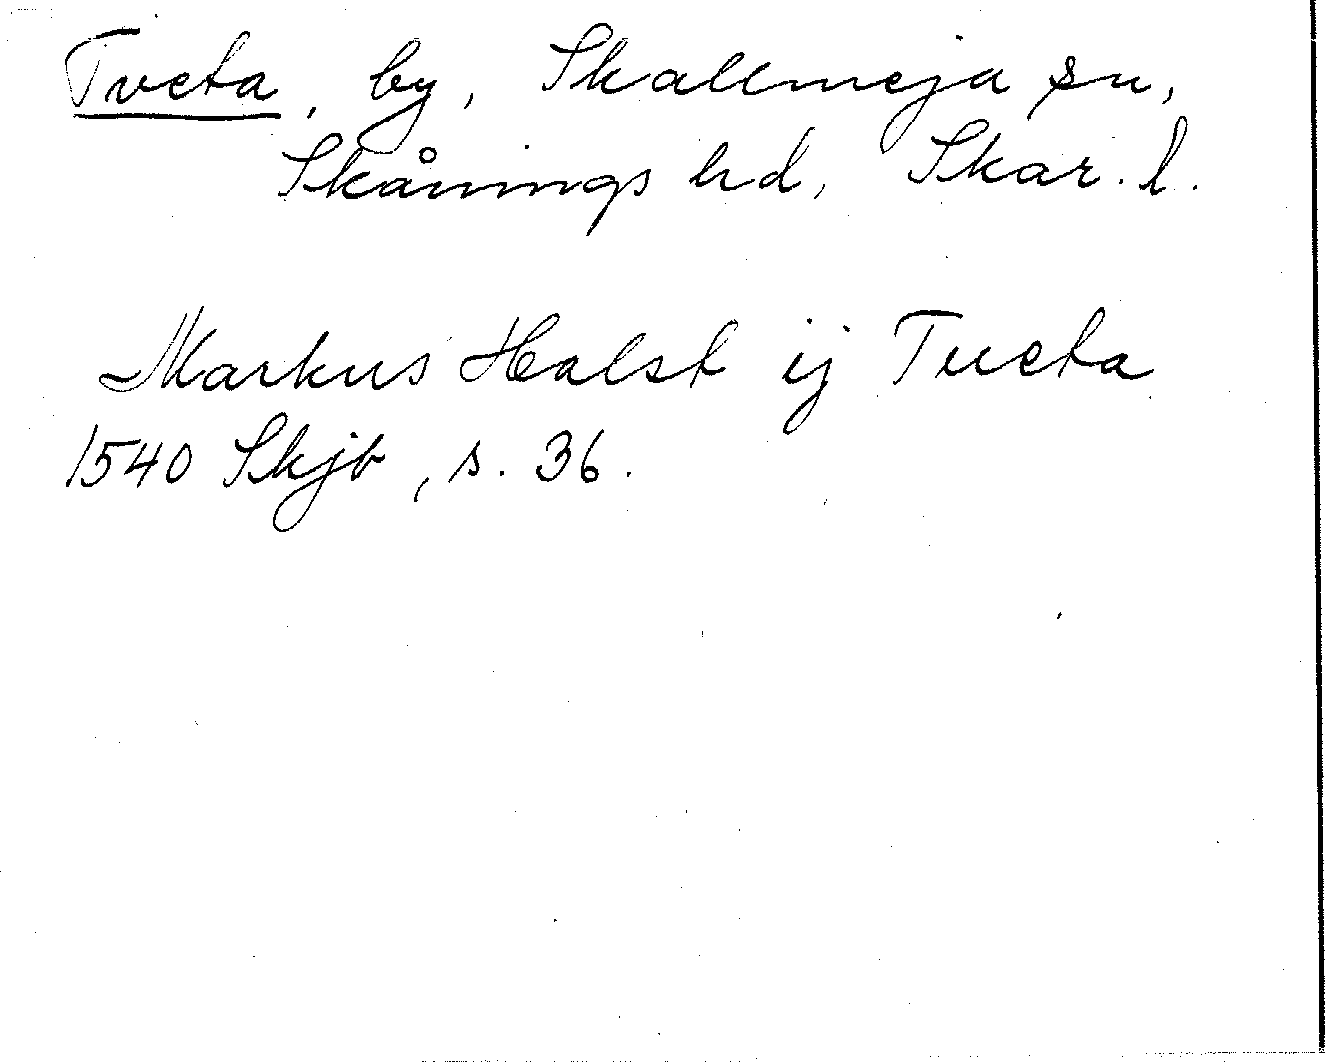 Tveta, by, Skallmeja sn,
Skånings hd, Skar. l.
Markus Halst ij Tueta
1540 Skjb, s. 36.